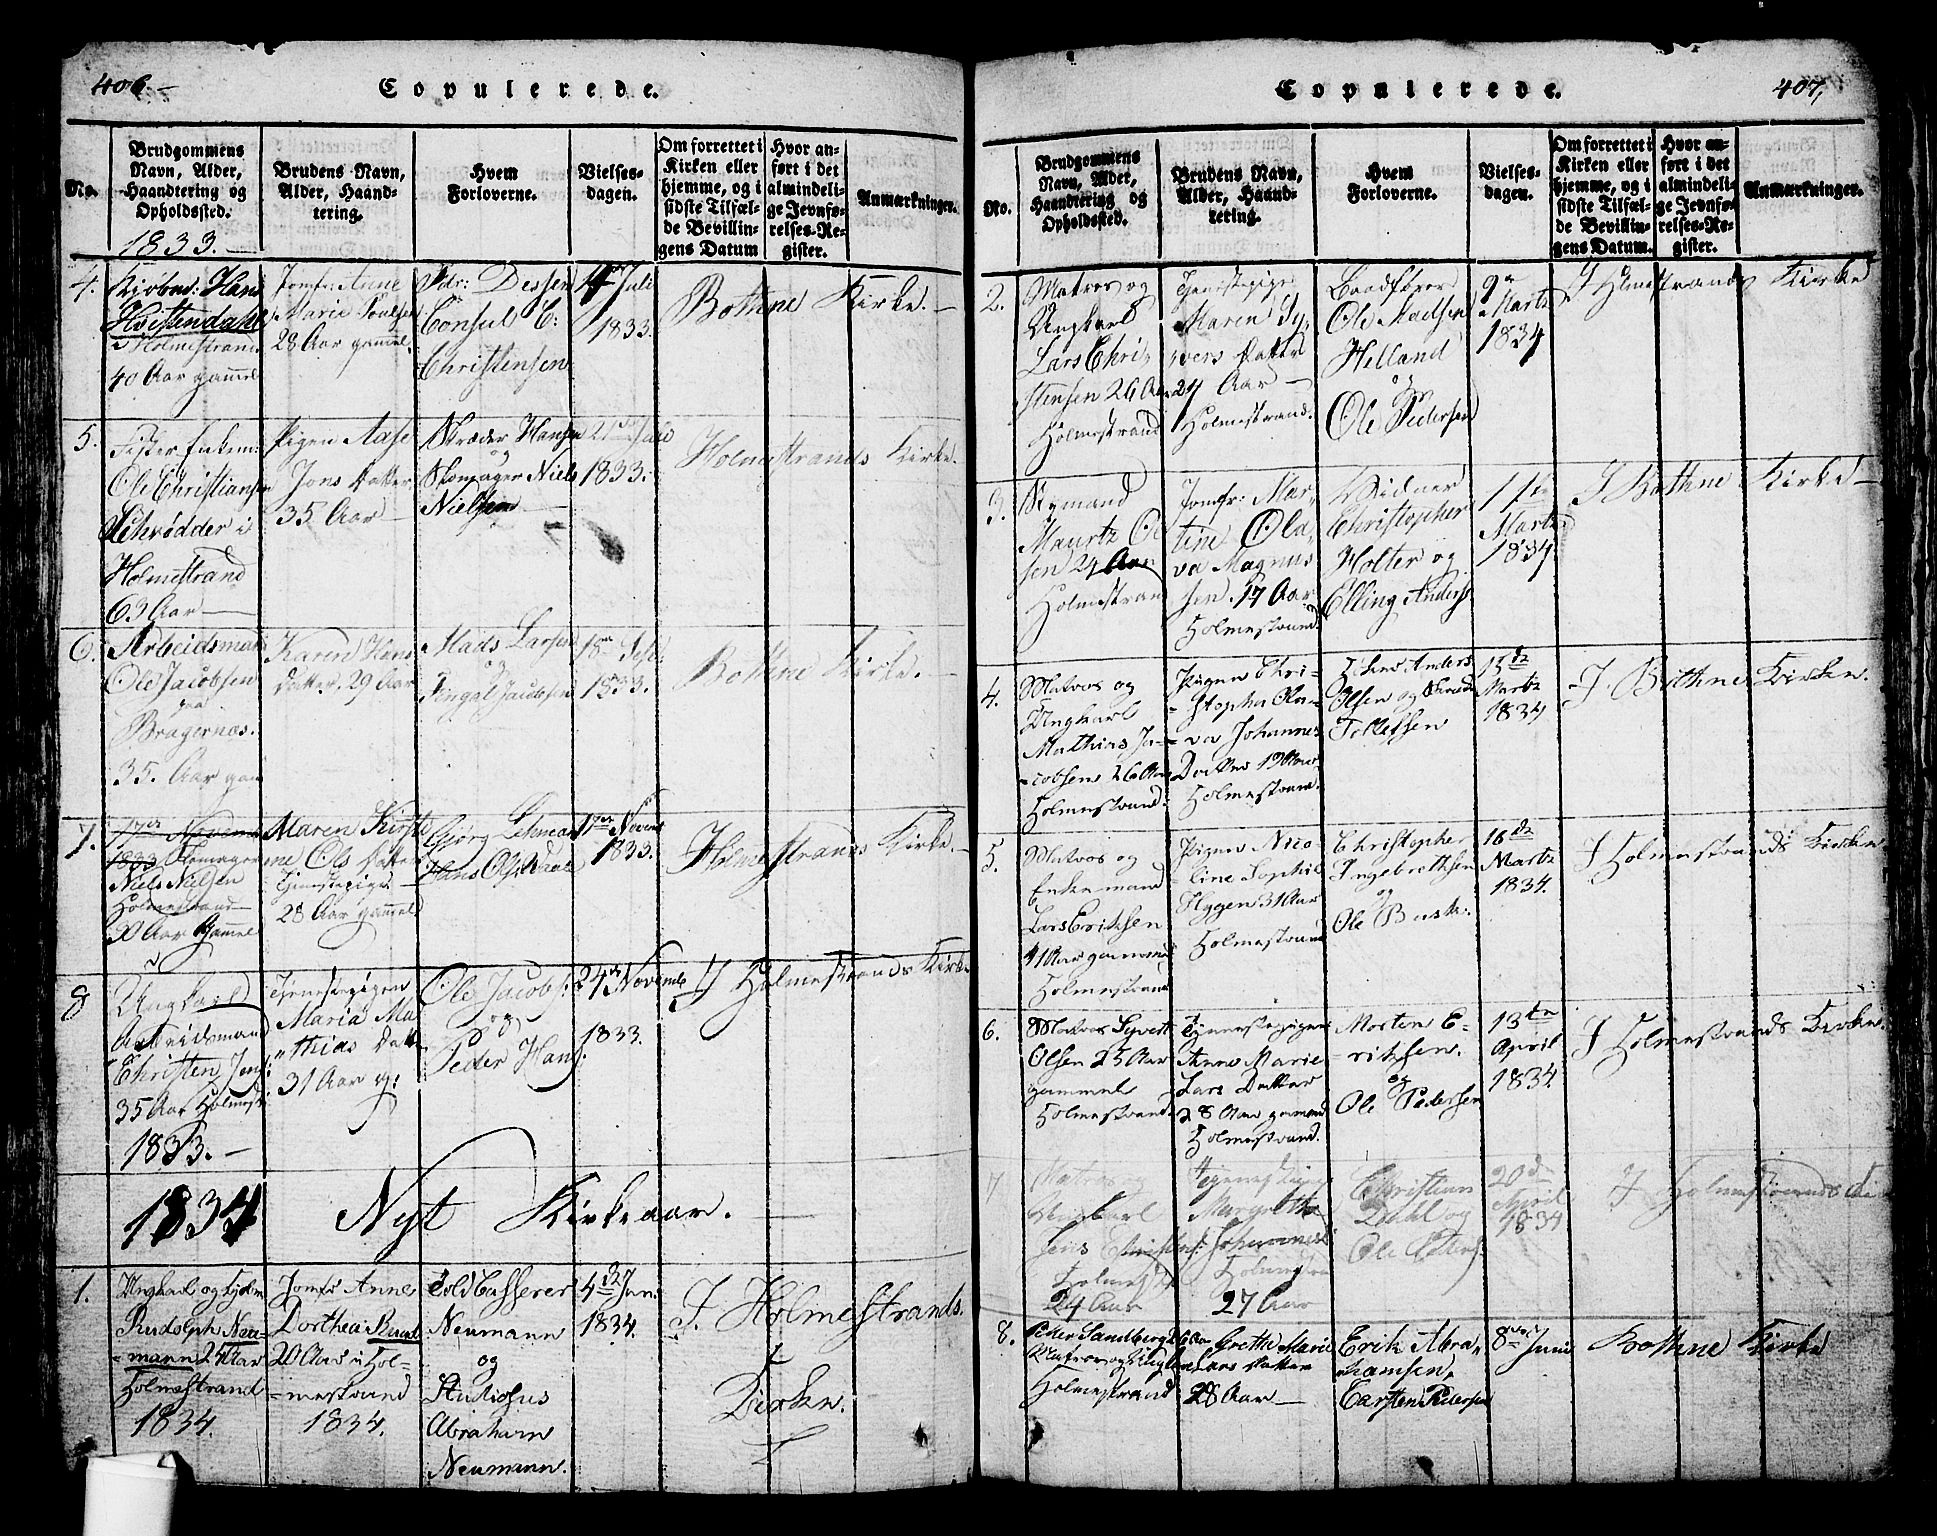 406.
Copulerede.
No.
Brudgommens
Navn, Alder,
Haandtering og
Opholdssted.
Brudens Navn,
Alder, Haand-
tering.
Hvem
Forloverne.
Vielses-
dagen.
Om forrettet i
Kirken eller
hjemme, og i
sidste Tilfæl-
de Bevillin-
gens Datum
Hvor an-
ført i det
almindeli-
ge Jevnfø-
relses-Re-
gister.
Anmærkninger.
1833.
4.
Hans
Holmestrand
40 Aar gamel
Jomfr: Anne
Marie Poulsen
28 Aar gamel
Dessen
Consul C:
Christensen
Juli
1833.
Bothne Kirke.
5.
Ole Christiansen
Schrødder i
Holmestrand
63 Aar
Pigen Aase
Jons Datter
35 Aar
Skræder Hansen
og
Skomager Niels
Nielsen
21de Juli
1833.
Holmestrands Kirke.
6.
Arbeidsman
Ole Jacobsen
paa
Bragernæs.
35. Aar gam
Karen Hans
Datter. 29 Aar
Mads Larsen
og
Jacobsen
18de
1833.
Bothne Kirke.
7.
17de Novemb
1833 Skomager
Niels Nielsen
Holmestrand
30 Aar Gamel
Maren Kirsti
ne Ols Datter
Tjenestepige
28 Aar gamel
Hans Olsen
17de Novemb
1833.
Holmestrands Kirke.
8
Ungkarl
Arbeidsmand
Christen Jens:
35 Aar Holmestr:
1833.
Tjenestepigen
Maria Ma
thias Datter
31 Aar g:
Ole Jacobs:
og
Peder Hans:
24de Novemb
1833.
I Holmestrands Kirke
1834 Nyt Kirkeaar.
1.
Ungkarl og
Rudolph Neu-
mann 24 Aar
Holmestrand
1834.
Jomfr Anne
Dorthea
20 Aar i Hol-
mestrand
1834.
Told Casserer
Neumann
og
Studiosus
Abraham
Neumann.
4de Jan:
1834.
I. Holmestrands.
Kirke.
407,
Copulerede.
No.
Brudgommens
Navn, Alder,
Haandtering og
Opholdssted.
Brudens Navn,
Alder, Haand-
tering.
Hvem
Forloverne.
Vielses-
dagen.
Om forrettet i
Kirken eller
hjemme, og i
sidste Tilfæl-
de Bevillin-
gens Datum.
Hvor an-
ført i det
almindeli-
ge Jevnfø-
relses-Re-
gister.
Anmærkninger.
2.
Matros og
Ungkarl
Lars Chri-
stensen 26 Aar
Holmestrand
Tjenestepige
Maren Sy-
vers Datter
24 Aar
Holmestrand.
Baadfører
Ole Madsen
Helland
og
Ole Pedersen
9de
Martz
1834
I Holmestrands Kirke
3.
Styrmand
Mauritz Ol
sen 24 Aar
Holmestrand
Jomfr: Mar-
tine Ola-
va Magnus
sen 17 Aar
Holmestrand
Christopher
Holter og
Elling Anders
11te
Martz
1834.
I Bothne Kirke
4.
Matros og
Ungkarl
Mathias Ja-
cobsen 26 Aar
Holmestrand.
Pigen Chri-
stopha Ola-
va Johannes
Datter 19 Aar
Holmestrand.
Anders
Olsen og
Tollefsen
13de
Martz
1834
I. Bothne Kirke.
5.
Matros og
Enkemand
Lars Erichsen
41 Aar gammel
Holmestrand
Pigen Nico-
line Sophie
Hyggen 31 Aar
Holmestrand
Christopher
Ingebrethsen
og
Ole Bask:
16de
Martz
1834.
I Holmestrands Kirke
6.
Matros Syvert
Olsen 25 Aar
gammel
Holmestrand.
Tjenestepigen
Anne Marie
Lars Datter
28 Aar gammel
Holmestrand.
Morten E-
richsen.
og
Ole Pedersen
13de
April
1834.
I Holmestrands Kirke.
7
Matros og
Ungkarl
Jens Christens:
Holmestr
24 Aar
Tjenestepige
Margrethe
Johannesd
Holmestra
27 Aar
Christian
Dahl og
Ole
20de
April
1834
I Holmestrands
8.
Peter Sandberg 26 Aar
Matros og Ungkarl
Holmestrand
Grethe Marie
Lars Datter
28 Aar
Erik Abra-
hamsen,
Carsten Pedersen
8de Juni
Bothne Kirke